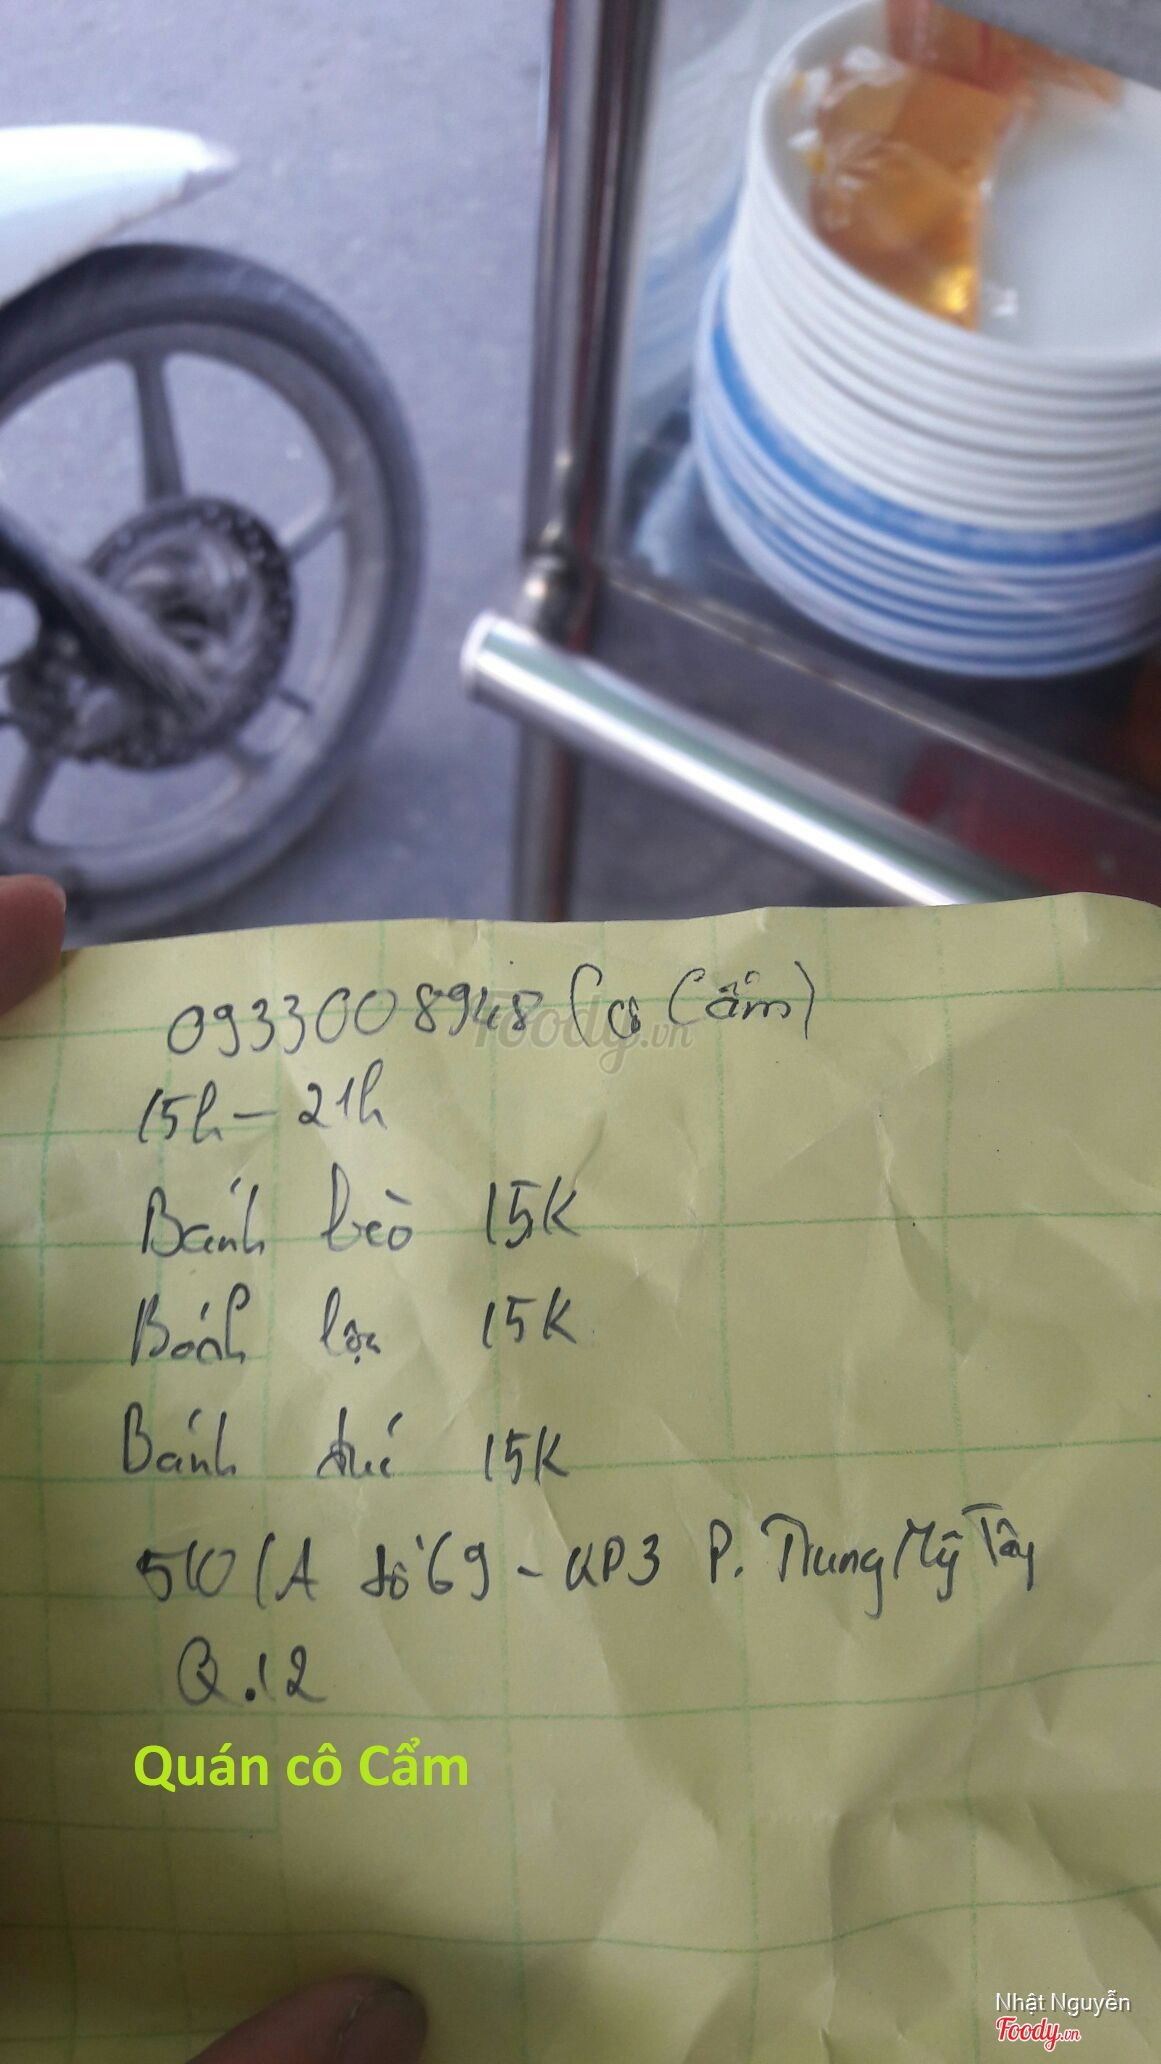 0933008948 (cô Cẩm)
15h - 21h
Bánh bèo 15K
Bánh lọc 15K
Bánh 15K
510/A tổ 69 - KP3 P. Trung Mỹ Tây
Q.12
Quán cô Cẩm
Foody.vn
Nhật Nguyễn
Foody.vn